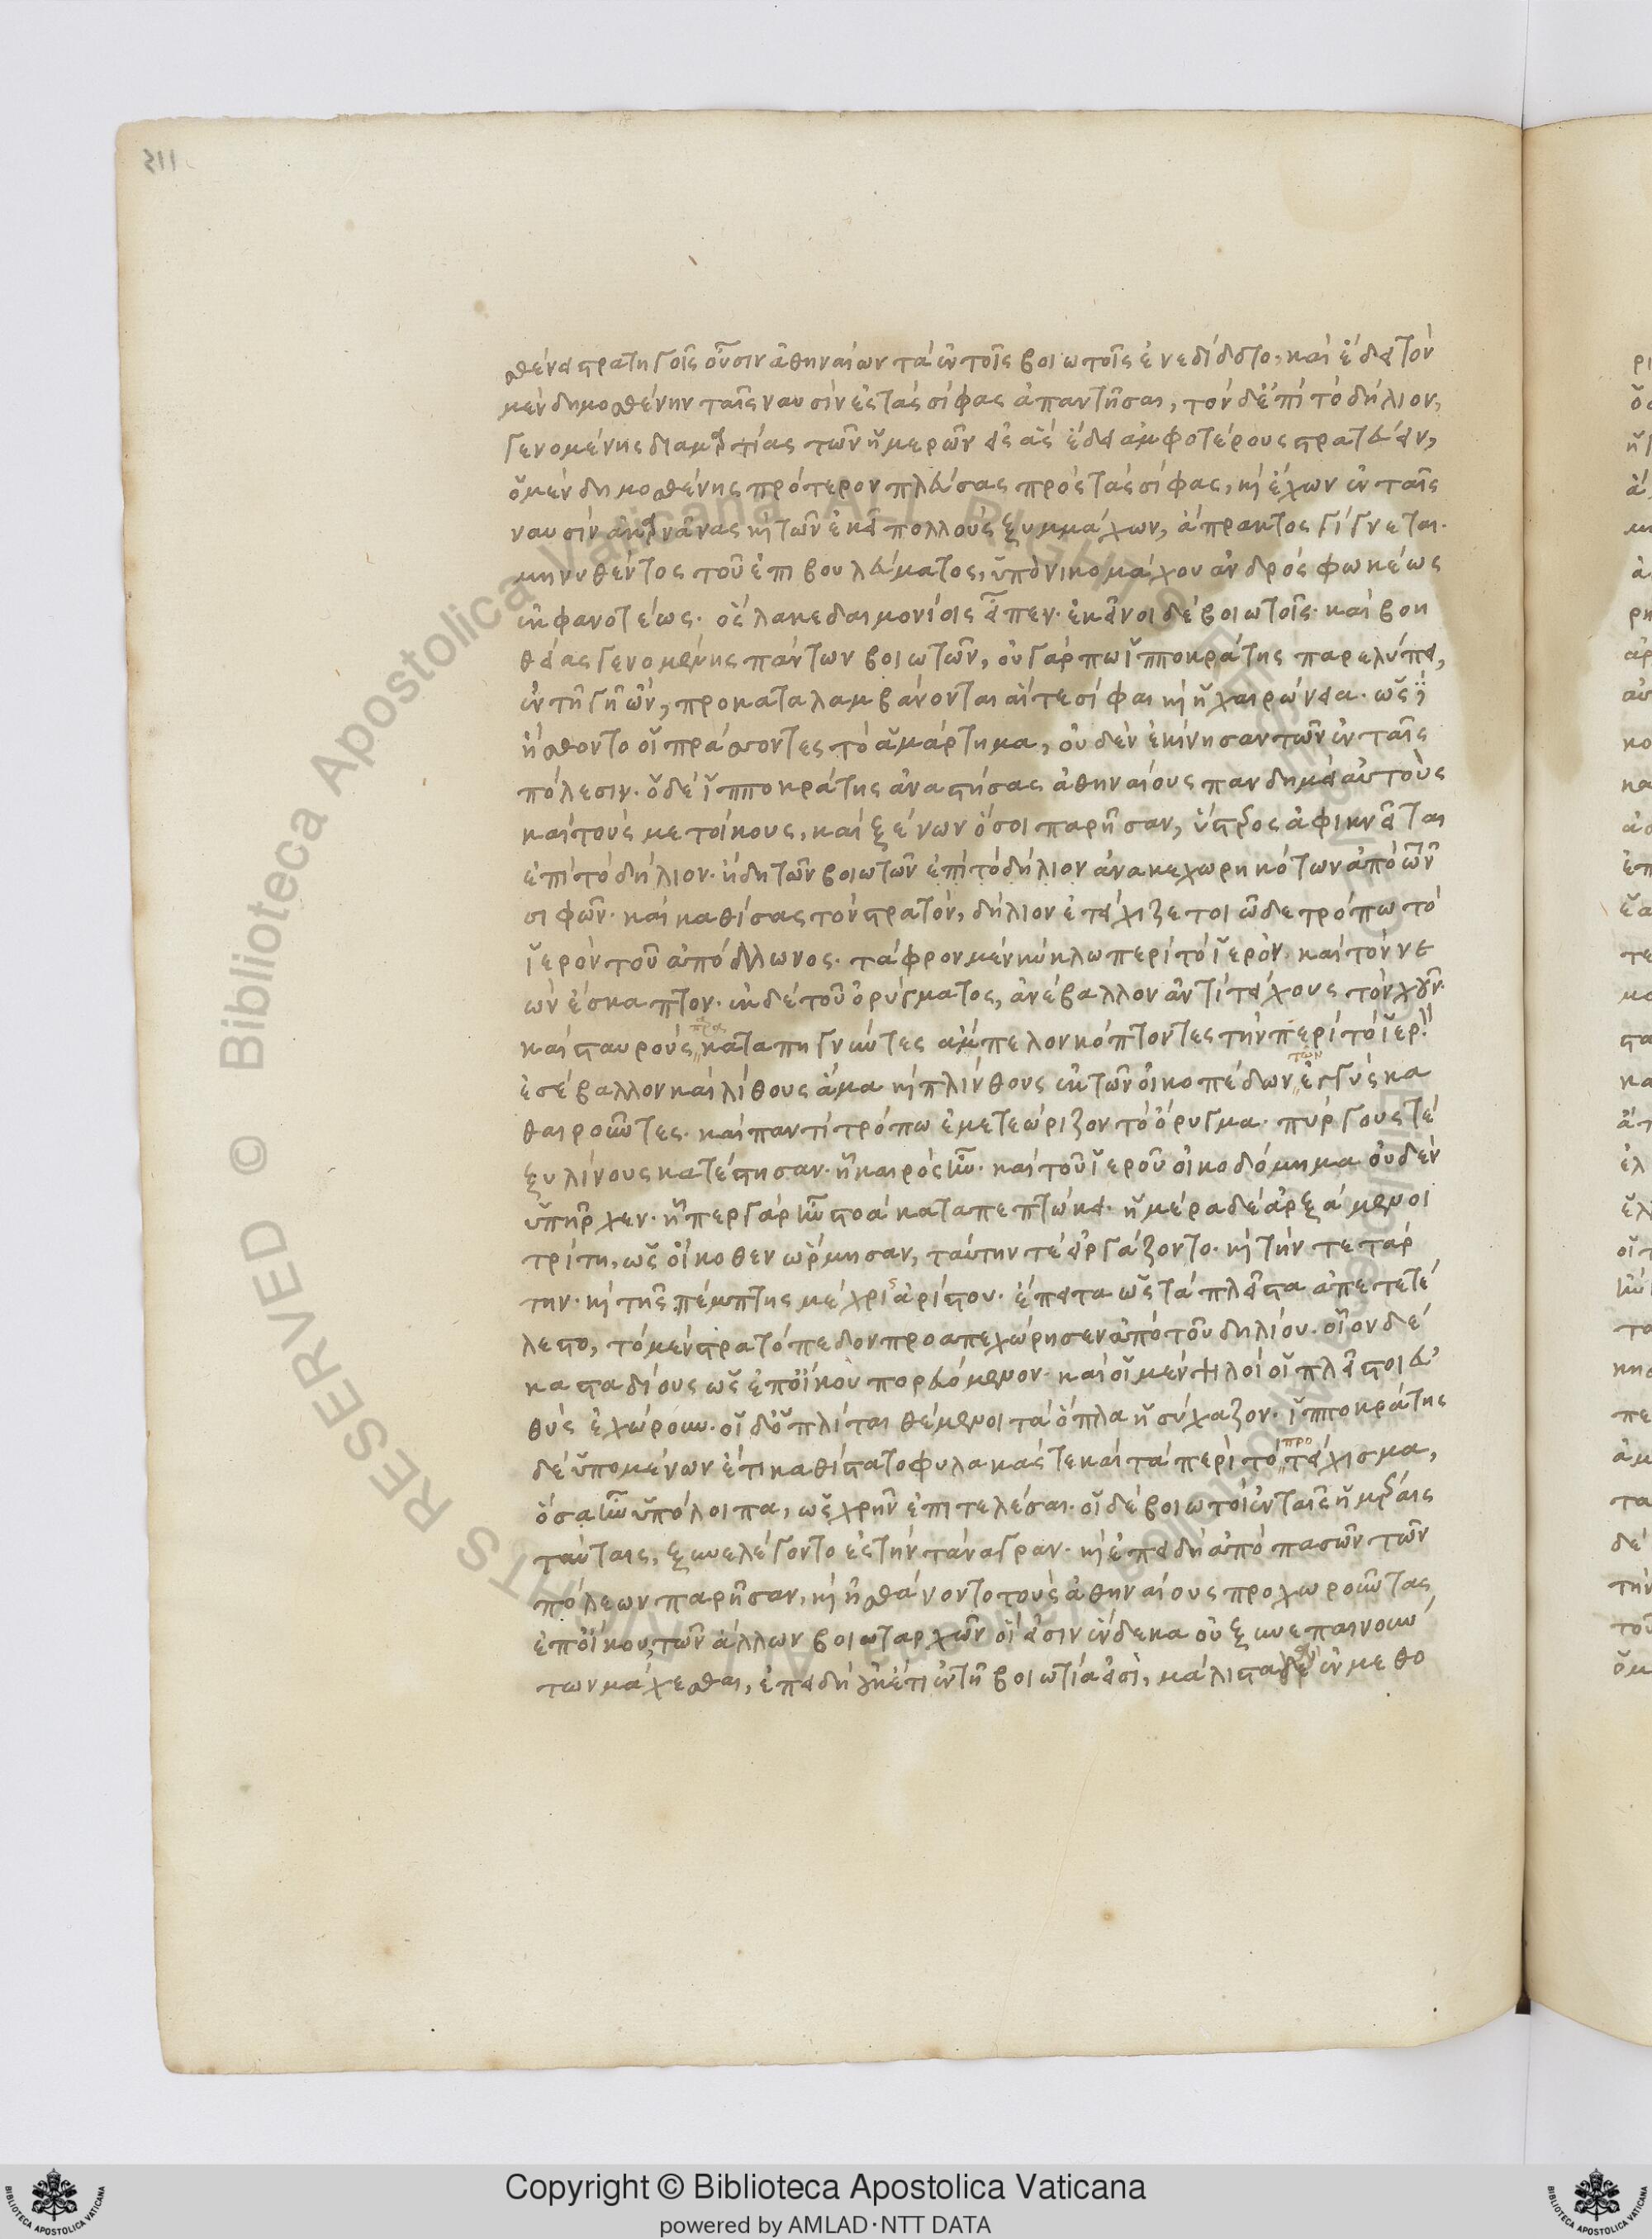 311
σθένει στρατηγοῖς οὖσιν ἀθηναίων τὰ ἐν τοῖς βοιωτοῖς ἐνεδίδοτο, καὶ ἔδει τὸν
μὲν δημοσθένην ταῖς ναυσὶν ἐς τὰς σίφας ἀπαντῆσαι, τὸν δ' ἐπὶ τὸ δήλιον,
γενομένης διαμαρτίας τῶν ἡμερῶν εἰς ἃς ἔδει ἀμφοτέρους στρατεύειν,
ὁ μὲν δημοσθένης πρότερον πλεύσας πρὸς τὰς σίφας, καὶ ἔχων ἐν ταῖς
ναυσὶν ἀκαρνᾶνας καὶ τῶν ἐκεῖ πολλοὺς ξυμμάχων, ἄπρακτος γίγνεται.
μηνυθέντος τοῦ ἐπιβουλεύματος, ὑπὸ νικομάχου ἀνδρὸς φωκέως
ἐκ φανοτέως. ὃς λακεδαιμονίοις εἶπεν. ἐκεῖνοι δὲ βοιωτοῖς. καὶ βοη
θείας γενομένης πάντων βοιωτῶν, οὐ γάρ πω ἱπποκράτης παρελύπει,
ἐν τῇ γῇ ὢν, προκαταλαμβάνονται αἵ τε σίφαι καὶ ἡ χαιρώνεια. ὡς δὲ
ᾔσθοντο οἱ πράσσοντες τὸ ἁμάρτημα, οὐδὲν ἐκίνησαν τῶν ἐν ταῖς
πόλεσιν. ὁ δὲ ἱπποκράτης ἀναστήσας ἀθηναίους πανδημεὶ αὐτοὺς
καὶ τοὺς μετοίκους, καὶ ξένων ὅσοι παρῆσαν, ὕστερος ἀφικνεῖται
ἐπὶ τὸ δήλιον. ἤδη τῶν βοιωτῶν ἐπὶ τὸ δήλιον ἀνακεχωρηκότων ἀπὸ τῶν
σιφῶν. καὶ καθίσας τὸν στρατὸν, δήλιον ἐτείχιζε τοιῶδε τρόπω τὸ
ἱερὸν τοῦ ἀπόλλωνος. τάφρον μὲν κύκλω περὶ τὸ ἱερὸν καὶ τὸν νε
ὼν ἔσκαπτον. ἐκ δὲ τοῦ ὀρύγματος, ἀνέβαλλον ἀντὶ τείχους τὸν χοῦν.
καὶ σταυροὺς καταπηγνύντες ἄμπελον κόπτοντες τὴν περὶ τὸ ἱερὸν
ἐσέβαλλον καὶ λίθους ἅμα καὶ πλίνθους ἐκ τῶν οἰκοπέδων τῶν ἐγγὺς κα
θαιροῦντες. καὶ παντὶ τρόπω ἐμετεώριζον τὸ ὄρυγμα. πύργους τὲ
ξυλίνους κατέστησαν. ᾗ καιρὸς ἦν. καὶ τοῦ ἱεροῦ οἰκοδόμημα οὐδὲν
ὑπῆρχεν. ἥπερ γὰρ ἦν στοὰ καταπεπτώκει. ἡμέρα δὲ ἀρξάμενοι
τρίτη, ὡς οἴκοθεν ὥρμησαν, ταύτην τὲ εἰργάζοντο. καὶ τὴν τετάρ
την. καὶ τῆς πέμπτης μέχρις ἀρίστου. ἔπειτα ὡς τὰ πλεῖστα ἀπετετέ
λεστο, τὸ μὲν στρατόπεδον προαπεχώρησεν ἀπὸ τοῦ δηλίου. οἷον δέ
κα σταδίους ὡς ἐπ' οἴκου πορευόμενον. καὶ οἱ μὲν ψιλοὶ οἱ πλεῖστοι εὐ
θὺς ἐχώρουν. οἱ δ' ὁπλῖται θέμενοι τὰ ὅπλα ἡσύχαζον. ἱπποκράτης
δὲ ὑπομένων ἔτι καθίστατο φυλακάς τε καὶ τὰ περὶ τὸ προτείχισμα,
ὅσα ἦν ὑπόλοιπα, ὡς χρῆν ἐπιτελέσαι. οἱ δὲ βοιωτοὶ ἐν ταῖς ἡμέραις
ταύταις, ξυνελέγοντο ἐς τὴν τάναγραν. καὶ ἐπειδὴ ἀπὸ πασῶν τῶν
πόλεων παρῆσαν, καὶ ᾐσθάνοντο τοὺς ἀθηναίους προχωροῦντας
ἐπ' οἴκου, τῶν ἄλλων βοιωταρχῶν οἵ εἰσιν ἕνδεκα οὐ ξυνεπαινούν
των μάχεσθαι, ἐπειδὴ οὐκ ἔτι ἐν τῇ βοιωτία εἰσὶ, μάλιστα γὰρ ἐν μεθο
Copyright © Biblioteca Apostolica Vaticana
powered by AMLAD·NTT DATA